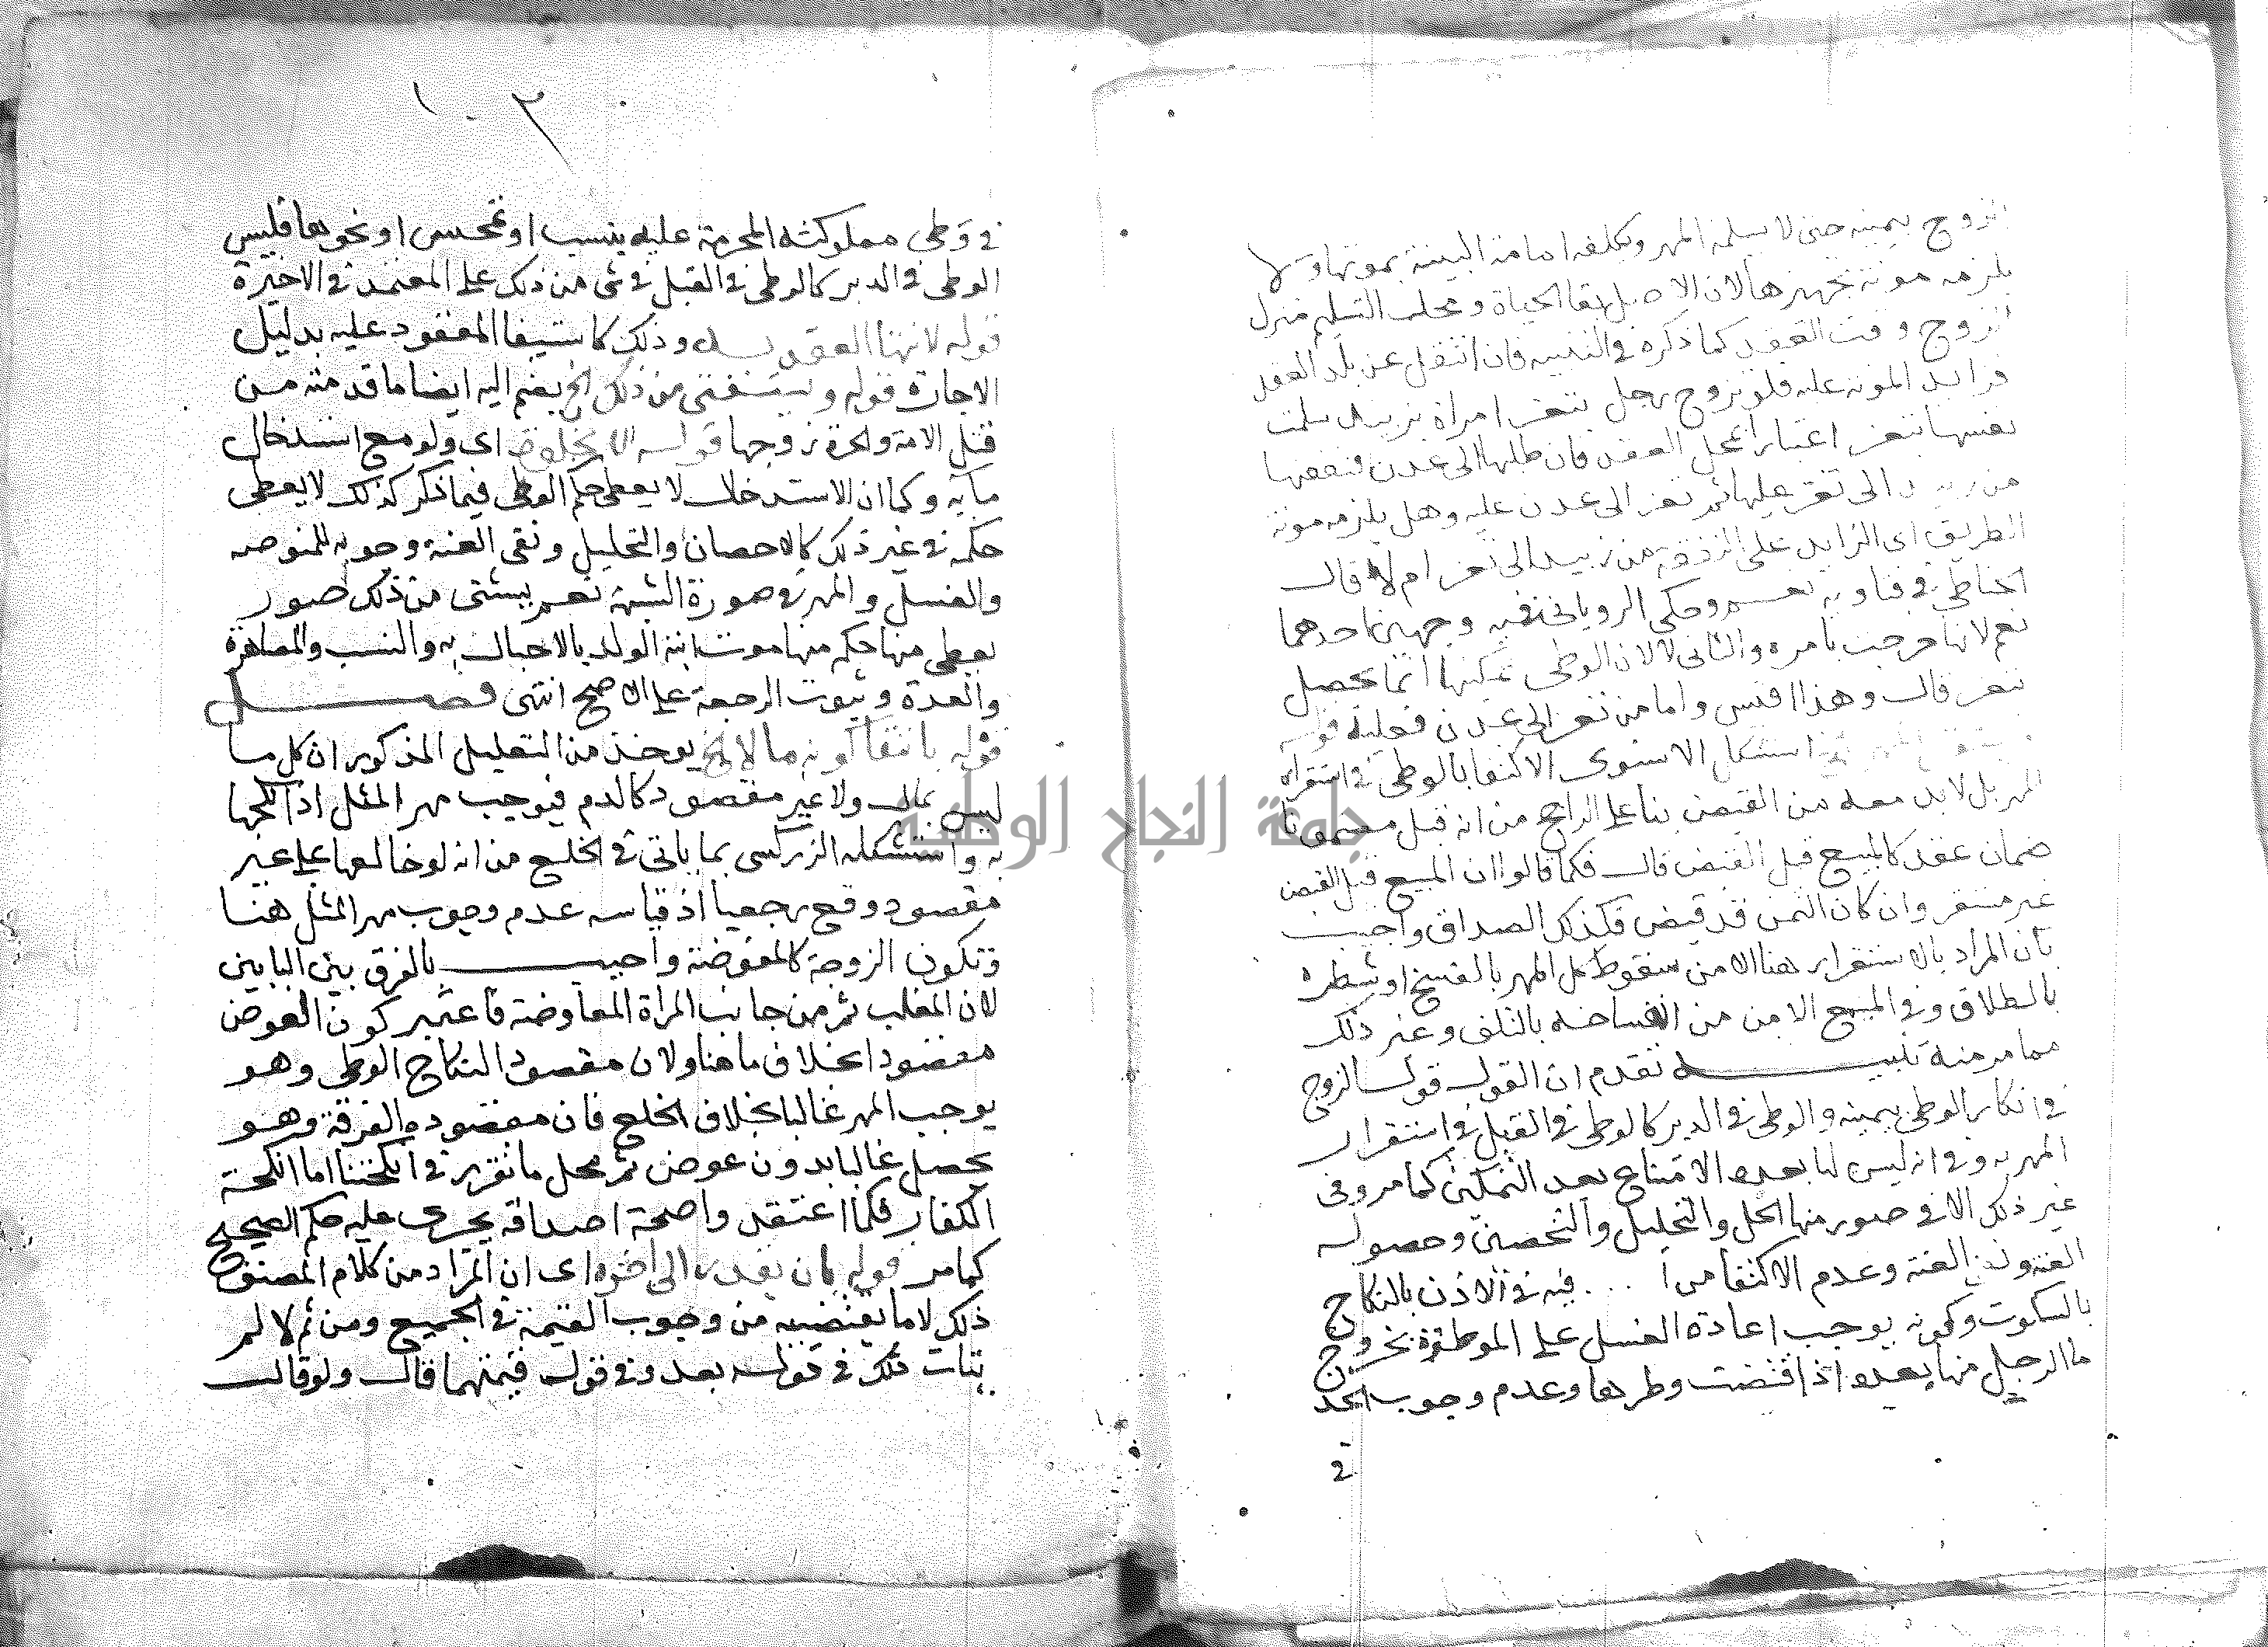 الزوج بيمينه حتى لا يسلمه المهر وتكلفه اقامة البينة بموتها ولا
يلزمه مونة تجهيزها لان الاصل بقا الحياة ومحل التسليم منزل
الزوج وقت العقد كما ذكره في التنبيه فان انتقل عن بلد العقد
فزايد المونة عليه فلو تزوج رجل بتعز امراة بزبيد سلمت
نفسها بتعز اعتبارا بمحل العقد فان طلبها الى عدن فنفقتها
من زبيد الى تعز عليها ثم تعز الى عدن عليه وهل يلزمه مونة
الطريق اى الزايد على النفقة من زبيد الى تعز ام لا قال
الحناطي في فتاويه نعم وحكى الروياني فيه وجهين احدهما
نعم لانها خرجت بامره والثاني لا لان الوطى تمكينها انما يحصل
بتعز قال وهذا اقيس واما من تعز الى عدن فعليه قوله
استشكل الاسنوى الاكتفا بالوطى في استقرار
المهر بل لا بد معه من القبض بنا على الراجح من انه قبل مضمونا
ضمان عقد كالمبيع قبل القبض قال فكما قالوا ان المبيع قبل القبض
غير مستقر وان كان الثمن قد قبض فكذلك الصداق واجيب
بان المراد بالاستقرار هنا الامن من سقوط كل المهر بالفسخ او شطره
بالطلاق وفي المبيع الامن من انفساخه بالتلف وغير ذلك
مما مر منه تنبيه تقدم ان القول قول الزوج
في انكار الوطى بيمينه والوطى في الدبر كالوطى في القبل في استقرار
المهر به وفي انه ليس لها بعده الامتناع بعد التمكين كما مر وفي
غير ذلك الا في صور منها الحل والتحليل والتحصين وحصول
الفئة ونفى العنة وعدم الاكتفا فيه في الاذن بالنكاح
بالسكوت وكونه يوجب اعادة الغسل على الموطوة بخروج
ما الرجل منها بعده اذا قضت وطرها وعدم وجوب الحد
في
١٠٢
في وطى مملوكته المحرمة عليه بنسب او تمجس او نحوها فليس
الوطى في الدبر كالوطى في القبل في شى من ذلك على المعتمد في الاخيرة
قوله لانتها العقد به وذلك كاستيفا المعقود عليه بدليل
الاجارة قوله ويستثنى من ذلك الخ يضم اليه ايضا ما قدمته من
قتل الامة والحرة زوجها قوله لا بخلوة اى ولو مع استدخال
مايه وكما ان الاستدخال لا يعطى حكم الوطى فيما ذكر كذلك لا يعطى
حكمه في غير ذلك كالاحصان والتحليل ونفى العنة ووجوبه للمفوضه
والغسل والمهر في صورة الشبهة نعم يستثنى من ذلك صور
يعطى منها حكمه منها موت ابنة الولد بالاحبال به والنسب والمصاهرة
والعدة وثبوت الرجعة على الاصح انتهى فصل
قوله بانتفا كونه مالا الخ يوخذ من التعليل المذكور ان كل ما
ليس بمال ولا غير مقصود كالدم فيوجب مهر المثل اذا نكحها
به واستشكله الزركسى بما ياتى في الخلع من انه لو خالعها على غير
مقصود وقع رجعيا اذ قياسه عدم وجوب مهر المثل هنا
وتكون الزوجة كالمفوضة واجيب بالفرق بين البابين
لان المغلب ثم من جانب المراة المعاوضة فاعتبر كون العوض
مقصودا بخلاف ما هنا ولان مقصود النكاح الوطى وهو
يوجب المهر غالبا بخلاف الخلع فان مقصوده الفرقة وهو
يحصل غالبا بدون عوض ثم محل ما تقرر في انكحتنا اما انكحة
الكفار فكلما اعتقدوا صحة اصداقه يجرى عليه حكم الصحيح
كما مر قوله بان يقدر الى اخره اى ان المراد من كلام المصنف
ذلك لا ما يقتضيه من وجوب القيمة في الجميع ومن ثم لا لم
يتات ذلك في قوله بعد وفي قول قيمتهما قال ولو قال
جامعة النجاح الوطنية